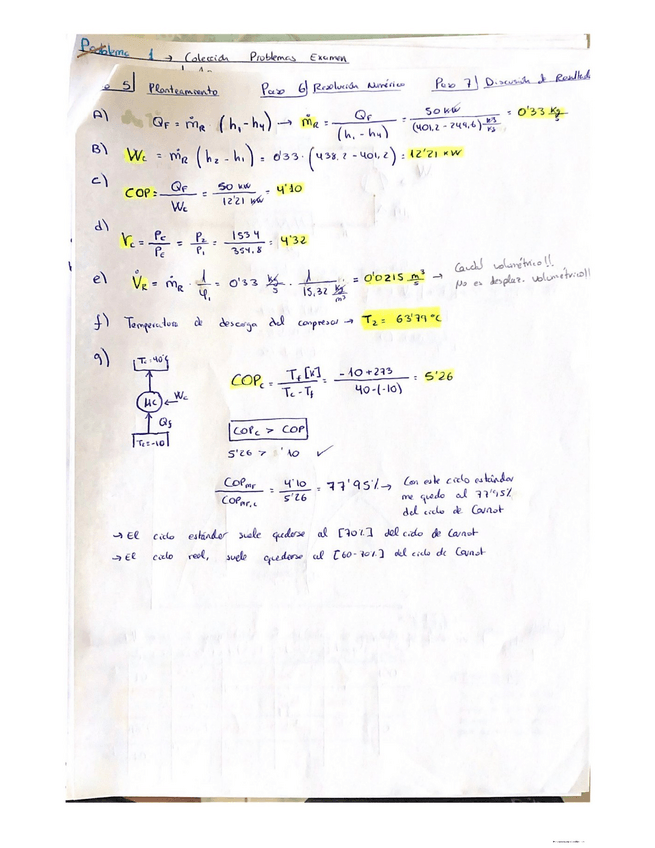 Problema 1 → Colección Problemas Examen
5) Planteamiento Paso 6) Resolución Numérica Paso 7) Discusión de Resultado
A) Q_F = ṁ_R (h₁ - h₄) → ṁ_R = Q_F / (h₁ - h₄) = 50 kW / (401,2 - 249,6) kJ/kg = 0'33 kg/s
B) W_c = ṁ_R (h₂ - h₁) = 0'33 · (438,2 - 401,2) = 12'21 kW
c) COP = Q_F / W_c = 50 kW / 12'21 kW = 4'10
d) r_c = P_c / P_E = P₂ / P₁ = 1534 / 354,8 = 4'32
e) V̇_R = ṁ_R · 1/φ₁ = 0'33 kg/s · 1 / 15,32 kg/m³ = 0'0215 m³/s → Caudal volumétrico!!
No es desplaz. volumétrico!!
f) Temperatura de descarga del compresor → T₂ = 63'79 ºC
g) T_c = 40ºC
MC ← W_c
Q_f
T_c = -10
COP_c = T_f [K] / T_c - T_f = -10 + 273 / 40 - (-10) = 5'26
COP_c > COP
5'26 > 4'10 ✓
COP_MF / COP_MF,C = 4'10 / 5'26 = 77'95% → Con este ciclo estándar
me quedo al 77'95%
del ciclo de Carnot
→ El ciclo estándar suele quedarse al [70%] del ciclo de Carnot
→ El ciclo real, suele quedarse al [60-70%] del ciclo de Carnot